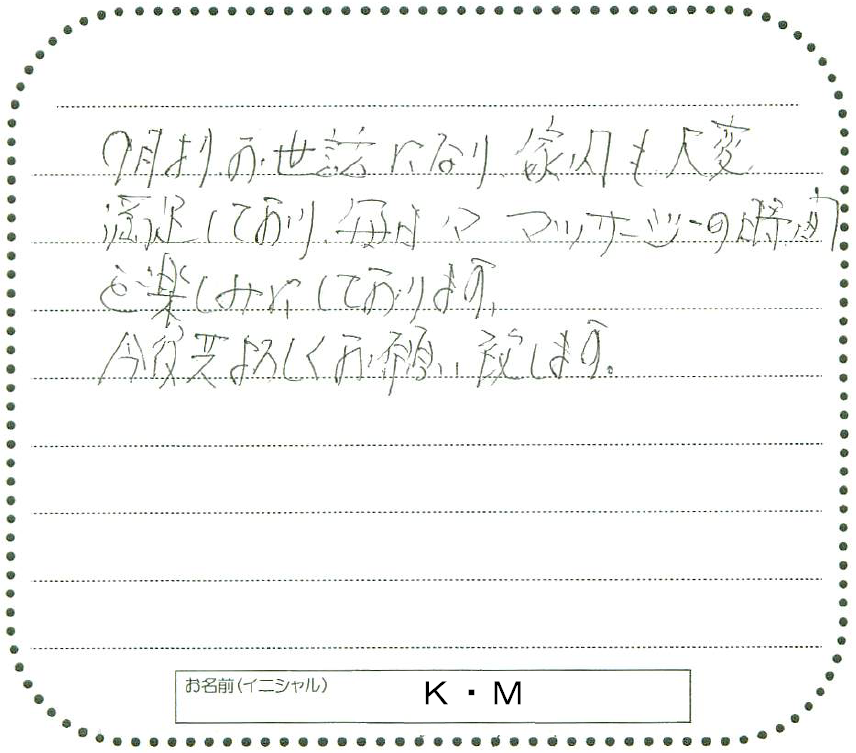 月よりお世話になり、家内も大変
満足しており、毎日々マッサージの時間
を楽しみにしております。
今後共よろしくお願い致します。
お名前(イニシャル)
K・M